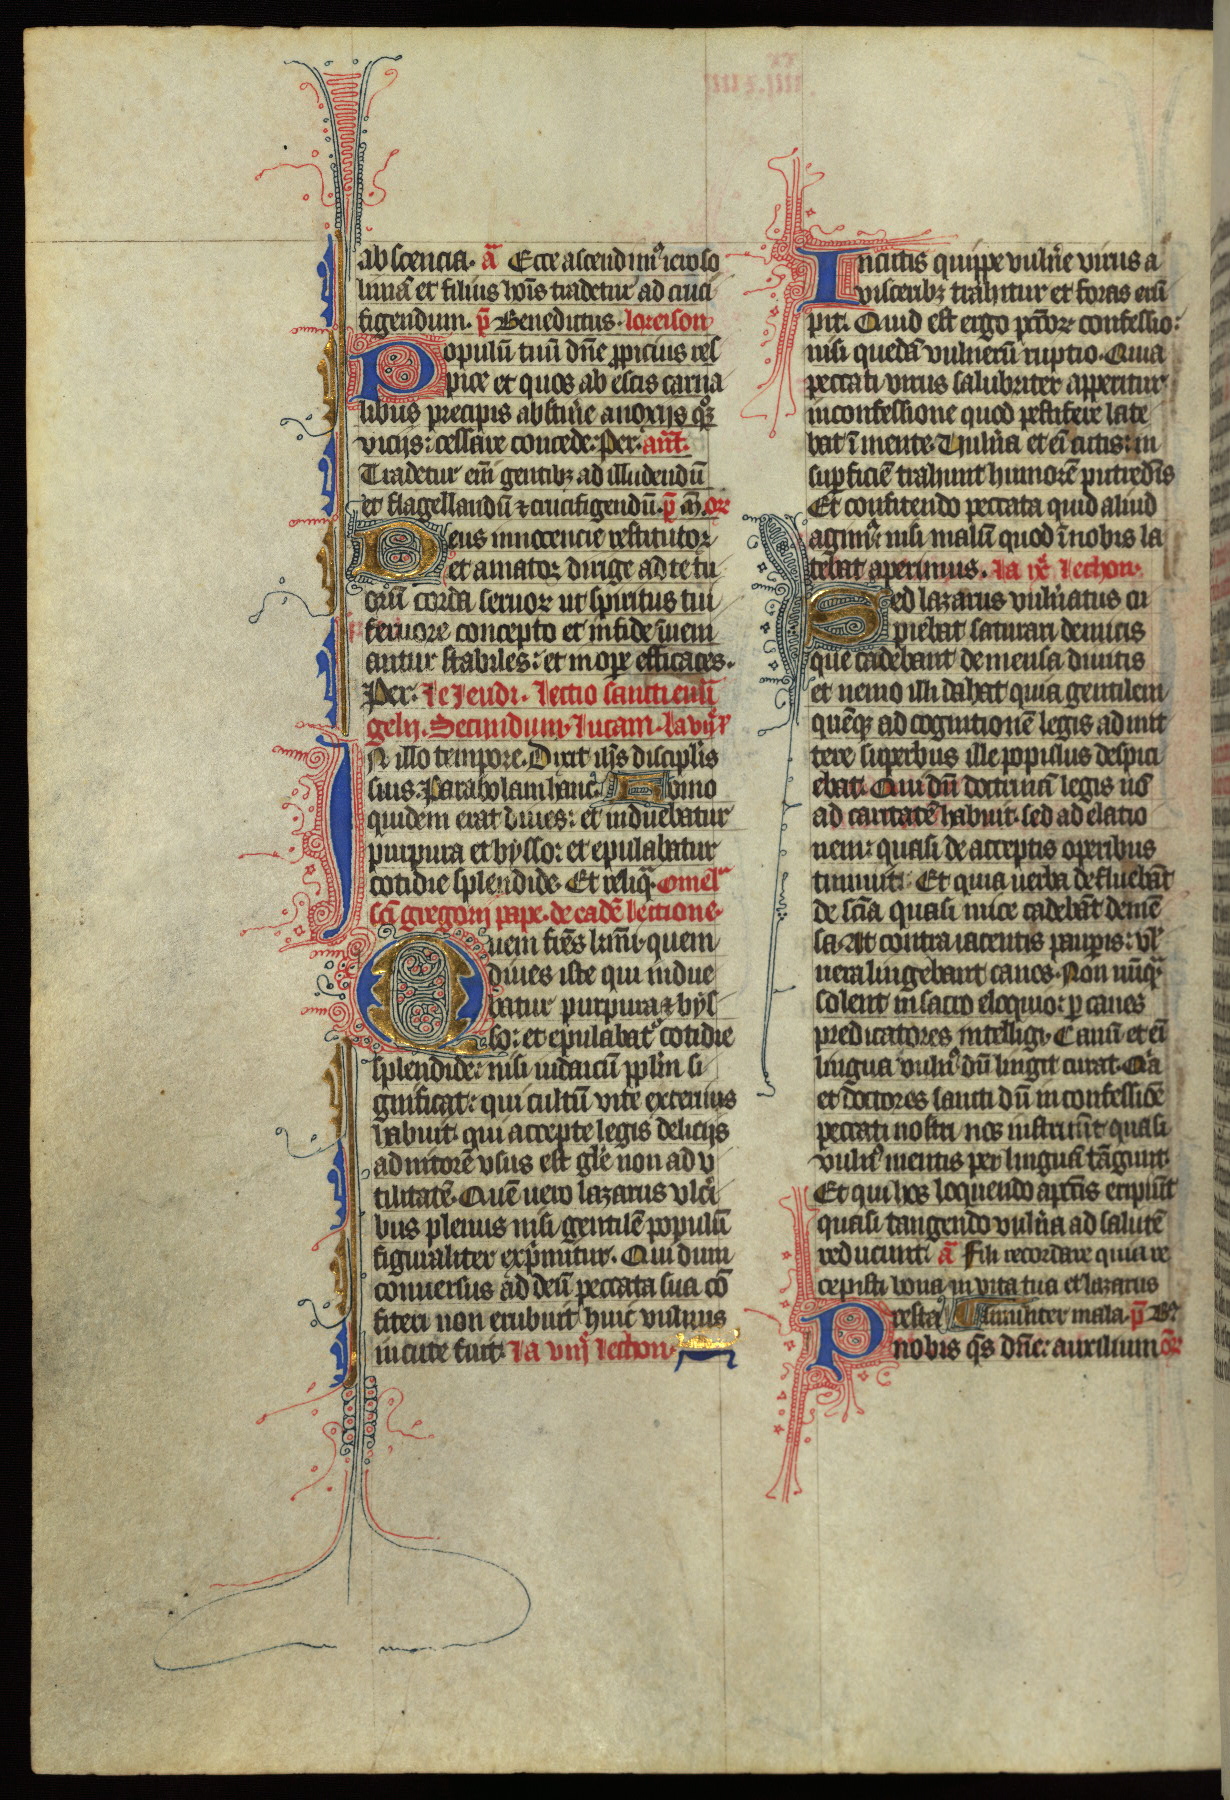 absce̅ncia. a̅ Ecce ascendimꝰ iheroso
lima̅ et filius ho̅is tradetur ad cruci
figendum. p̅ Benedictus. loreison
Populu̅ tuu̅ dn̅e ꝓpicius res
pice et quos ab escis carna
libus precipis abstine̅ a noxijs qͦꝫ
vicijs: cessare concede. Per. ant̅.
Tradetur eni̅ gentibꝫ ad illudendu̅
et flagellandu̅ ⁊ crucifigendu̅. p̅ m̅. or
Deus innocencie restitutor
et amator dirige ad te tu
oru̅ corda seruoꝝ ut spiritus tui
feruore concepto et in fide i̅ueni
antur stabiles: et in oꝑe efficaces.
Per. Le Jeudi. Lectio sancti eua̅
gelij. Secundum. lucam.
IN illo tempore. Dixit ih̅s disciplis
suis. Parabolam hanc. Homo
quidem erat diues: et induebatur
purpura et bysso: et epulabatur
cotidie splendide. Et reliqa. Omel
sc̅i gregorij pape. de eade̅ lectione.
Quem fr̅es kr̅mi. quem
diues iste qui indue
batur purpura ⁊ bys
so: et epulabatꝰ cotidie
splendide: nisi iudaicu̅ ꝓplm si
gnificat: qui cultu̅ vite exterius
habuit. qui accepte legis delicijs
ad nitore̅ vsus est gl̅e non ad v
tilitate̅. Que̅ uero lazarus vlc̅i
bus plenus nisi gentile̅ populu̅
figuraliter exp̅mitur. Qui dum
conuersus ad deu̅ peccata sua co̅
fiteri non erubuit huic vulnus
in cute fuit. La
lechon.
In cutis quippe vuln̅e virus a
visceribꝫ trahitur et foras eru̅
pit. Quid est ergo pc̅c̅oꝝ confessio:
nisi queda̅ vulneru̅ ruptio. Quia
peccati virus salubriter apperitur
in confessione quod pestifere late
bat i̅ mente. Vuln̅a et eni̅ cutis: in
suꝑficie̅ trahunt humore̅ putredi̅s
Et confitendo peccata quid aliud
agimꝰ nisi malu̅ quod i̅ nobis la
tebat aperimus. La
lechon.
Sed lazarus vuln̅atus cu
piebat saturari de micis
que cadebant de mensa diuitis
et nemo illi dabat quia gentilem
que̅qꝫ ad cognitione̅ legis admit
tere superbus ille populus despici
ebat. Qui du̅ doctrina̅ legis no̅
ad caritate̅ habuit. sed ad elatio
nem: quasi de acceptis operibus
tumuit. Et quia uerba deflueba̅t
de sc̅ia quasi mice cadeba̅t de me̅
sa. At contra iacentis pauꝑis: vl̅
nera lingebant canes. Non nu̅qa̅
solent in sacro eloquio: ꝑ canes
predicatores intelligi. Canu̅ et ei̅
lingua vulnꝰ du̅ lingit curat. Qia
et doctores sancti du̅ in confessio̅e
peccati nostri nos instruu̅t quasi
vulnꝰ mentis per lingua̅ ta̅gunt.
Et qui nos loquendo a pc̅tis eripiu̅t
quasi tangendo vuln̅a ad salute̅
reducunt. a̅ Fili recordare quia re
cepisti bona in vita tua et lazarus
Presta
similiter mala. p̅ B̅
nobis q̅s dn̅e: auxilium or̅